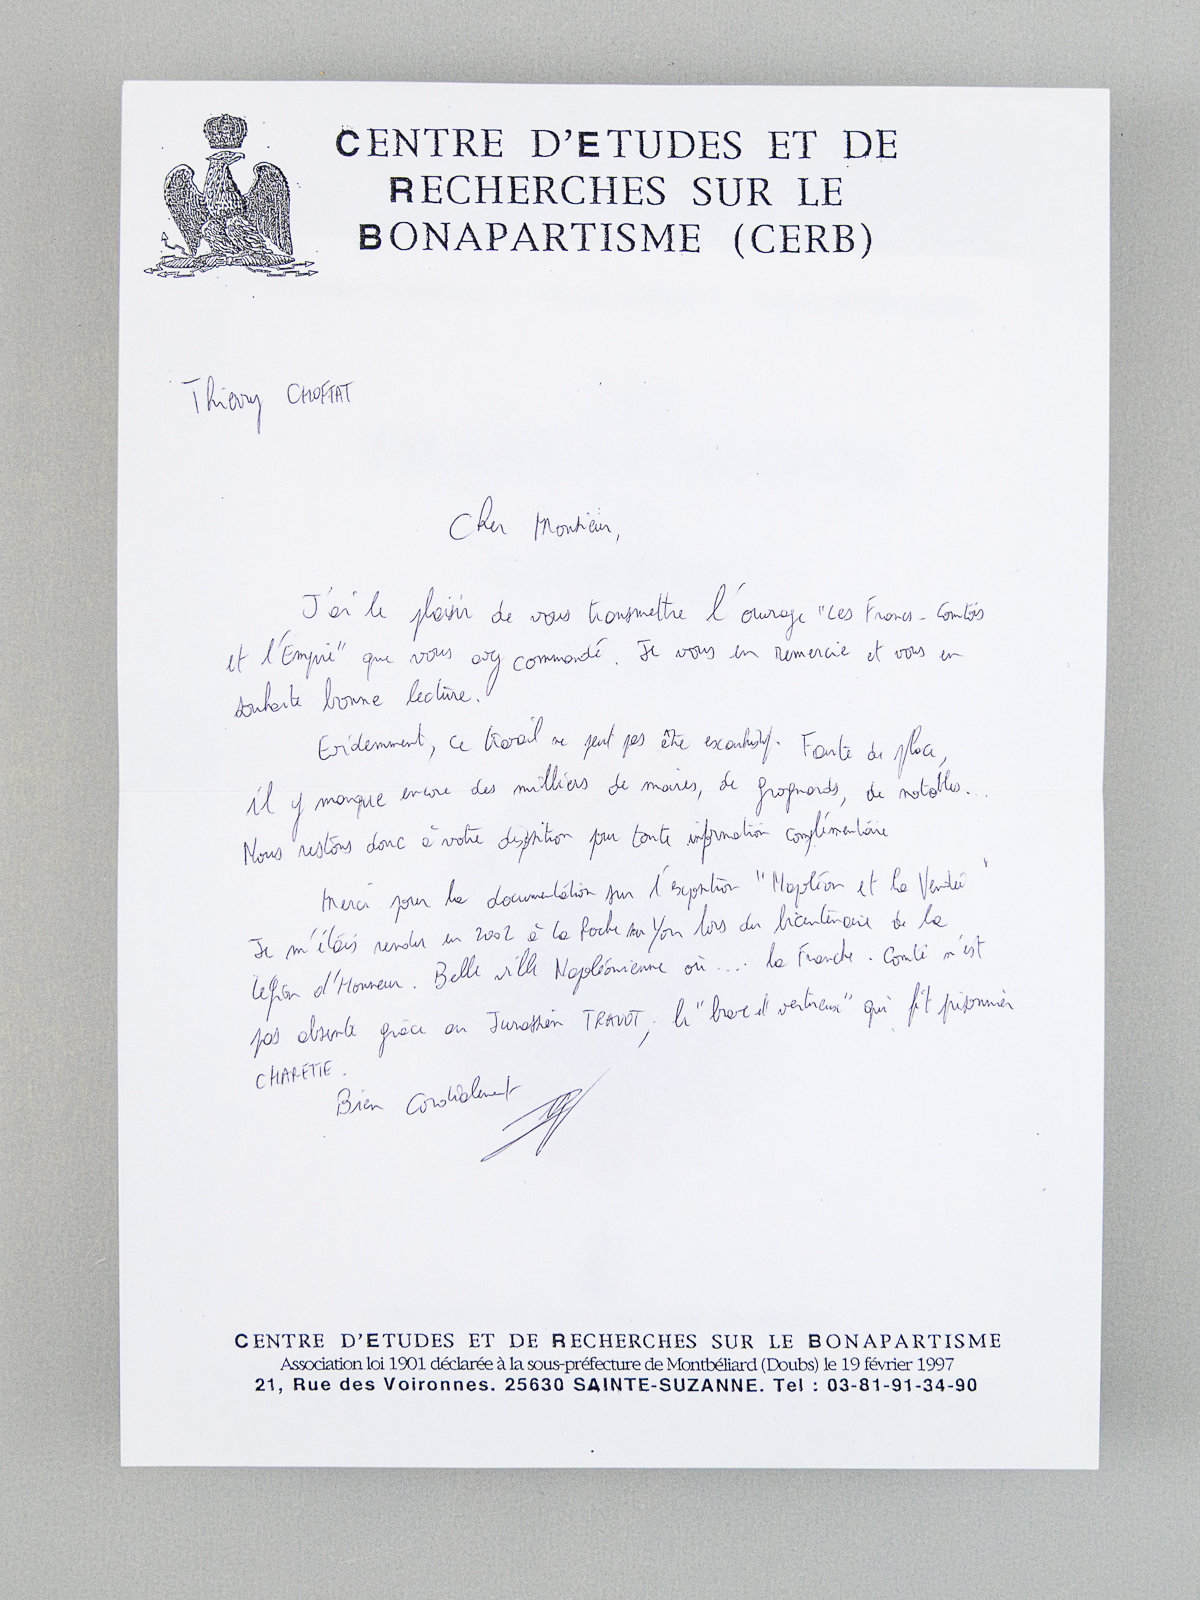 CENTRE D'ETUDES ET DE
RECHERCHES SUR LE
BONAPARTISME (CERB)
Thierry CHOFFAT
Cher Monsieur,
J'ai le plaisir de vous transmettre l'ouvrage "Les Francs-Comtois
et l'Empire" que vous avez commandé. Je vous en remercie et vous en
souhaite bonne lecture.
Evidemment, ce travail ne peut pas être exhaustif. Faute de place,
il y manque encore des milliers de maires, de grognards, de notables...
Nous restons donc à votre disposition pour toute information complémentaire
Merci pour la documentation sur l'exposition "Napoléon et la Vendée"
Je m'étais rendu en 2002 à la Roche sur Yon lors du bicentenaire de la
Légion d'Honneur. Belle ville Napoléonienne où ... la Franche-Comté n'est
pas absente grâce au Jurassien TRAVOT, le "brave et vertueux" qui fit prisonnier
CHARETTE.
Bien Cordialement
CENTRE D'ETUDES ET DE RECHERCHES SUR LE BONAPARTISME
Association loi 1901 déclarée à la sous-préfecture de Montbéliard (Doubs) le 19 février 1997
21, Rue des Voironnes. 25630 SAINTE-SUZANNE. Tel : 03-81-91-34-90